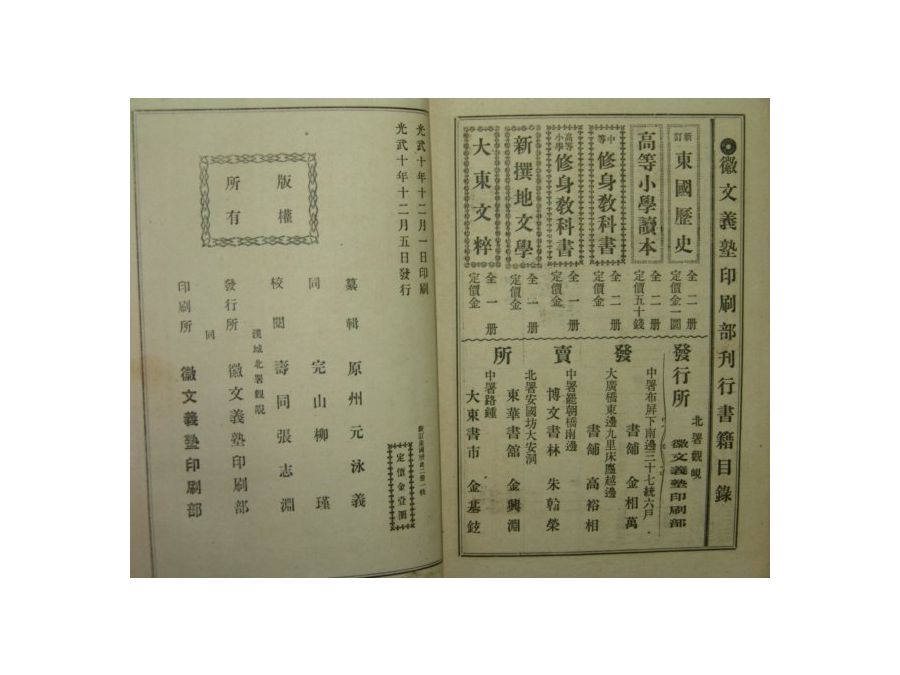 徽文義塾印刷部刊行書籍目錄
新訂 東國歷史 全二册 定價金一圜
高等小學讀本 全二册 定價五十錢
中等 修身敎科書 全二册 定價金
高等小學 修身敎科書 全一册 定價金
新撰地文學 全一册 定價金
大東文粹 全一册 定價金
發行所 北署觀峴 徽文義塾印刷部
發賣所
中署布屛下南邊三十七統六戶
書舖 金相萬
大廣橋東邊九里床廛越邊
書舖 高裕相
中署罷朝橋南邊
博文書林 朱翰榮
北署安國坊大安洞
東華書舘 金興淵
中署鍾路
大東書市 金基鉉
光武十年十二月一日印刷
光武十年十二月五日發行
版權所有
新訂東國歷史二册一秩
定價金壹圜
纂輯 原州元泳義
同 完山柳瑾
校閱 壽同張志淵
漢城北署觀峴
發行所 徽文義塾印刷部
同
印刷所 徽文義塾印刷部